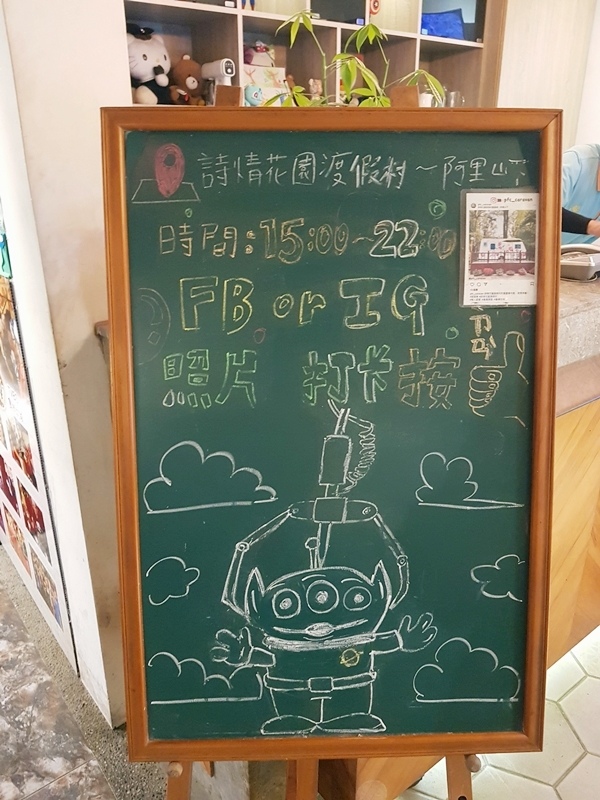 詩情花園渡假村～阿里山
時間：15:00～22:00
FB or IG
照片 打卡 按
pfc_caravan